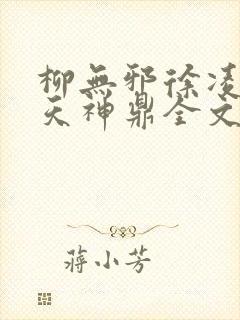 柳無邪徐凌
天神鼎全文
蔣小芳